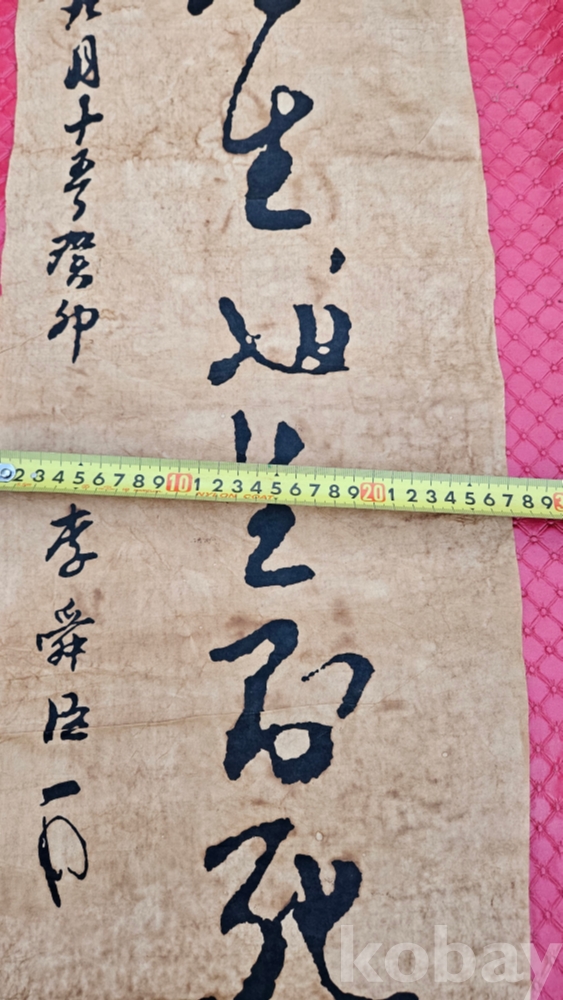 生必生則死
九月十五日癸卯
李舜臣
2 3 4 5 6 7 8 9 10 1 2 3 4 5 6 7 8 9 20 1 2 3 4 5 6 7 8 9
NYLON COAT
kobay